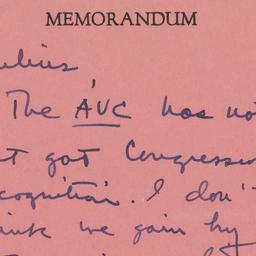 MEMORANDUM
ulius
The AVC has no
t got Congression
cognition. I don't
ink we gain by